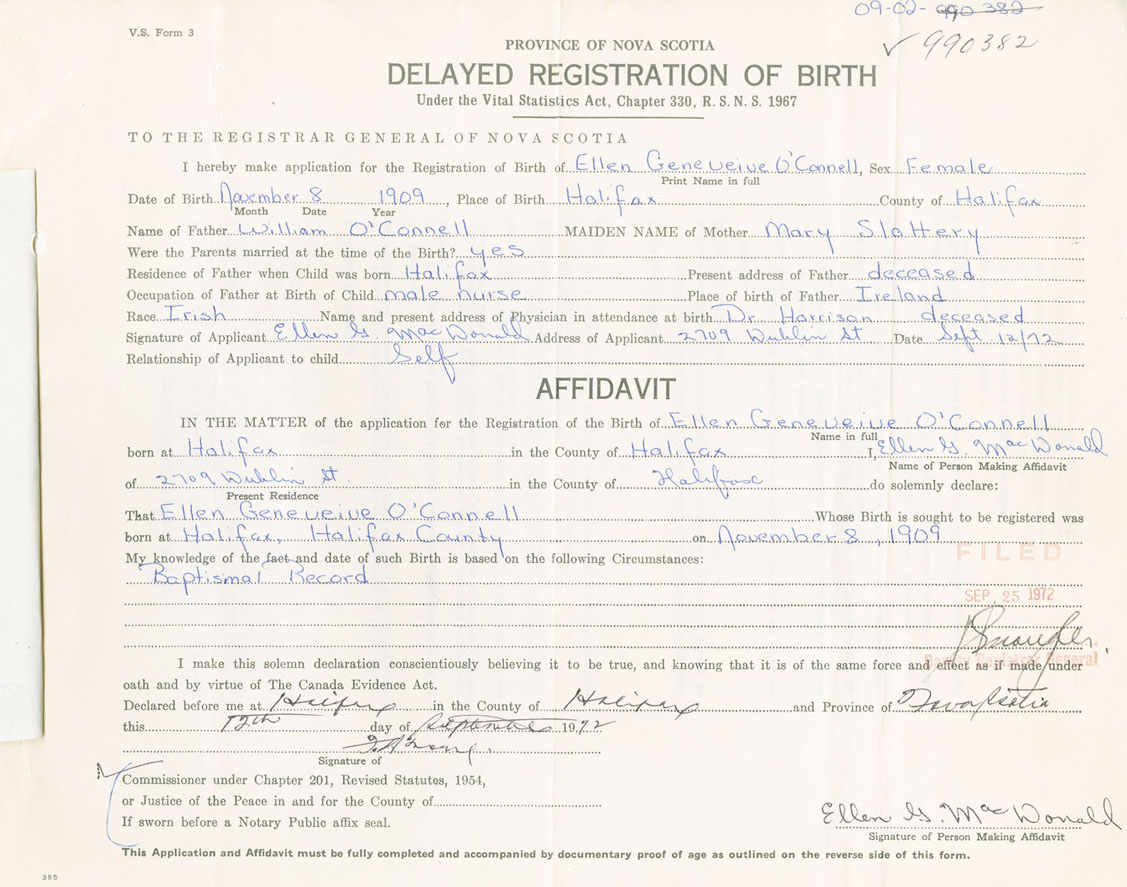 09-02-990 382
V.S. Form 3
✓ 990382
PROVINCE OF NOVA SCOTIA
DELAYED REGISTRATION OF BIRTH
Under the Vital Statistics Act, Chapter 330, R. S. N. S. 1967
TO THE REGISTRAR GENERAL OF NOVA SCOTIA
I hereby make application for the Registration of Birth of Ellen Geneveive O'Connell, Sex Female
Print Name in full
Date of Birth November 8 1909, Place of Birth Halifax County of Halifax
Month Date Year
Name of Father William O'Connell MAIDEN NAME of Mother Mary Slattery
Were the Parents married at the time of the Birth? yes
Residence of Father when Child was born Halifax Present address of Father deceased
Occupation of Father at Birth of Child male nurse Place of birth of Father Ireland
Race Irish Name and present address of Physician in attendance at birth Dr Harrison deceased
Signature of Applicant Ellen G. MacDonald Address of Applicant 2709 Dublin St Date Sept 12/72
Relationship of Applicant to child Self
AFFIDAVIT
IN THE MATTER of the application for the Registration of the Birth of Ellen Geneveive O'Connell
Name in full
born at Halifax in the County of Halifax I, Ellen G. MacDonald
Name of Person Making Affidavit
of 2709 Dublin St. in the County of Halifax do solemnly declare:
Present Residence
That Ellen Geneveive O'Connell Whose Birth is sought to be registered was
born at Halifax, Halifax County on November 8, 1909
My knowledge of the fact and date of such Birth is based on the following Circumstances:
FILED
Baptismal Record
SEP 25 1972
I make this solemn declaration conscientiously believing it to be true, and knowing that it is of the same force and effect as if made under
Deputy Registrar General
oath and by virtue of The Canada Evidence Act.
Declared before me at Halifax in the County of Halifax and Province of Nova Scotia
this 12th day of September 1972
Signature of
Commissioner under Chapter 201, Revised Statutes, 1954,
or Justice of the Peace in and for the County of
If sworn before a Notary Public affix seal.
Ellen G. MacDonald
Signature of Person Making Affidavit
This Application and Affidavit must be fully completed and accompanied by documentary proof of age as outlined on the reverse side of this form.
305